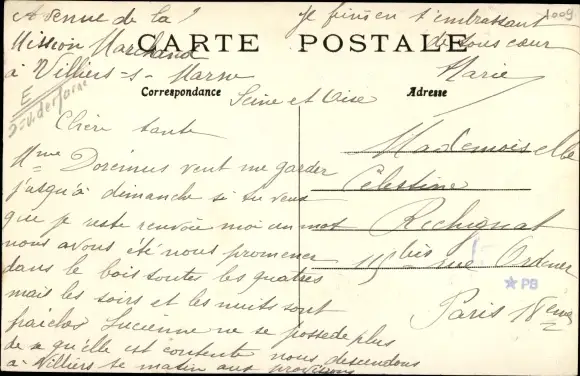 Avenue de la
Mission Marchand
à Villiers-s-Marne
Seine et Oise
CARTE POSTALE
Correspondance
Adresse
Chère tante
Mme Doremus veut me garder
jusqu'à dimanche si tu veux
que je reste renvoie moi un mot
nous avons été nous promener
dans le bois toutes les quatres
mais les soirs et les nuits sont
fraiches Lucienne ne se possède plus
de ce qu'elle est contente nous descendons
à Villiers le matin aux provisions
Je finis en t'embrassant
de tous cœur
Marie
Mademoiselle
Célestine
Rechignat
115 bis rue Ordener
Paris 18eme
1009
E
PB